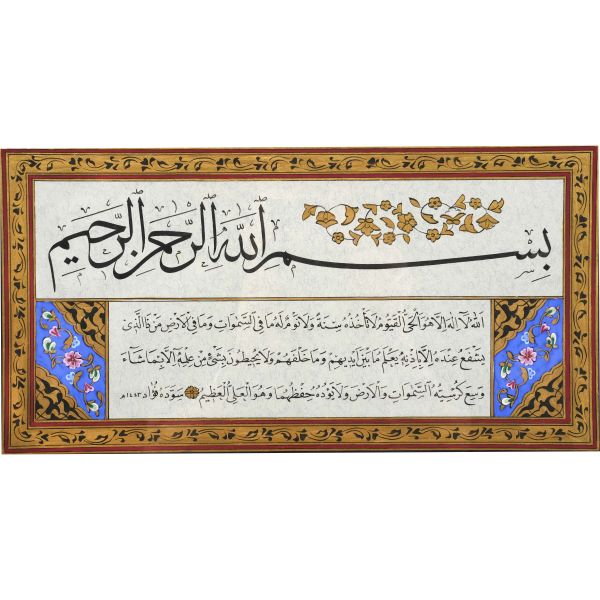 بِسْمِ اللهِ الرَّحْمٰنِ الرَّحِيمِ
اَللهُ لَا اِلٰهَ اِلَّا هُوَ الْحَيُّ الْقَيُّومُ لَا تَأْخُذُهُ سِنَةٌ وَلَا نَوْمٌ لَهُ مَا فِى السَّمٰوَاتِ وَمَا فِى الْاَرْضِ مَنْ ذَا الَّذِى
يَشْفَعُ عِنْدَهُ اِلَّا بِاِذْنِهِ يَعْلَمُ مَا بَيْنَ اَيْدِيهِمْ وَمَا خَلْفَهُمْ وَلَا يُحِيطُونَ بِشَىْءٍ مِنْ عِلْمِهِ اِلَّا بِمَا شَاءَ
وَسِعَ كُرْسِيُّهُ السَّمٰوَاتِ وَالْاَرْضَ وَلَا يَؤُدُهُ حِفْظُهُمَا وَهُوَ الْعَلِىُّ الْعَظِيمُ سَوَّدَهُ فُؤَاد